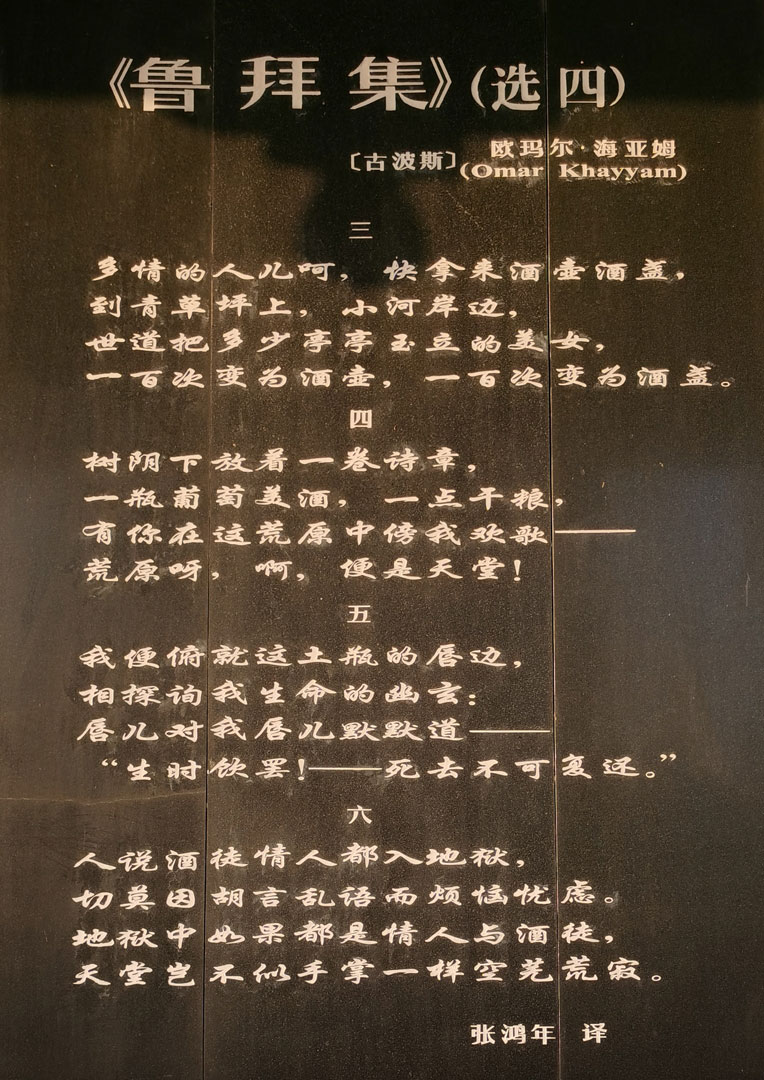 《鲁拜集》(选四)
〔古波斯〕欧玛尔·海亚姆
(Omar Khayyam)
三
多情的人儿呵，快拿来酒壶酒盏，
到青草坪上，小河岸边，
世道把多少亭亭玉立的美女，
一百次变为酒壶，一百次变为酒盏。
四
树阴下放着一卷诗章，
一瓶葡萄美酒，一点干粮，
有你在这荒原中傍我欢歌——
荒原呀，啊，便是天堂！
五
我便俯就这土瓶的唇边，
相探询我生命的幽玄：
唇儿对我唇儿默默道——
“生时饮罢！——死去不可复还。”
六
人说酒徒情人都入地狱，
切莫因胡言乱语而烦恼忧虑。
地狱中如果都是情人与酒徒，
天堂岂不似手掌一样空芜荒寂。
张鸿年 译